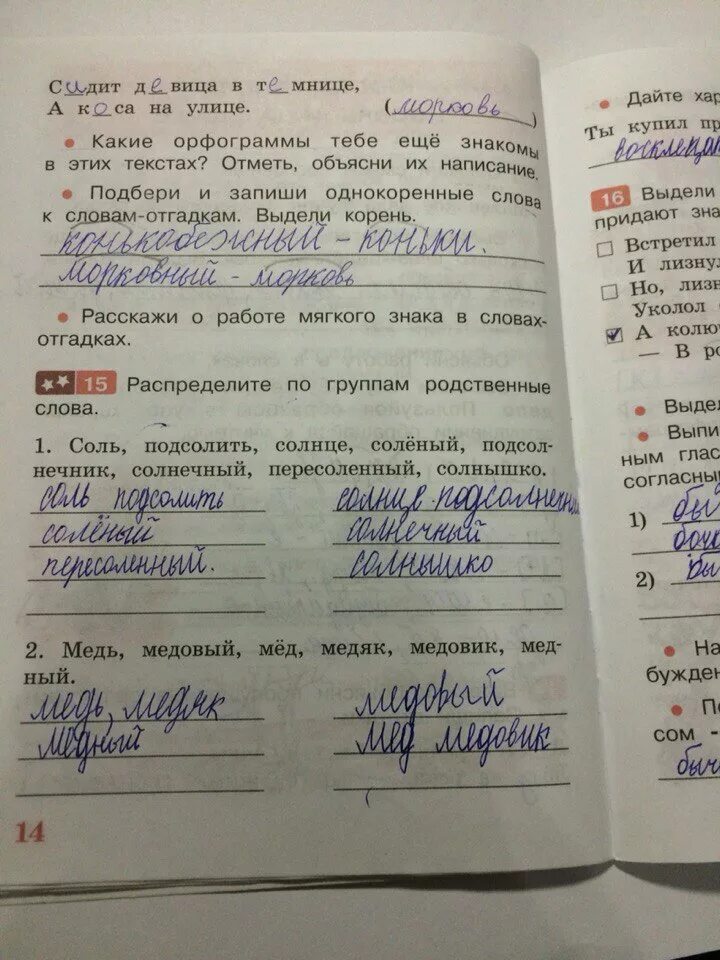 Сидит девица в темнице,
А коса на улице. (морковь)
• Какие орфограммы тебе ещё знакомы
в этих текстах? Отметь, объясни их написание.
• Подбери и запиши однокоренные слова
к словам-отгадкам. Выдели корень.
конькобежный - коньки.
морковный - морковь
• Расскажи о работе мягкого знака в словах-
отгадках.
15 Распределите по группам родственные
слова.
1. Соль, подсолить, солнце, солёный, подсол-
нечник, солнечный, пересоленный, солнышко.
соль подсолить солнце подсолнечник
солёный солнечный
пересоленный. солнышко
2. Медь, медовый, мёд, медяк, медовик, мед-
ный.
медь, медяк медовый
медный мед медовик
14
• Дайте хар
Ты купил пр
восклицат
16 Выдели
придают зна
Встретил
И лизнул
Но, лизн
Уколол
А колюч
— В ро
• Выдел
• Выпи
ным глас
согласны
1) бы
боч
2) бы
• На
бужден
• По
сом -
быч